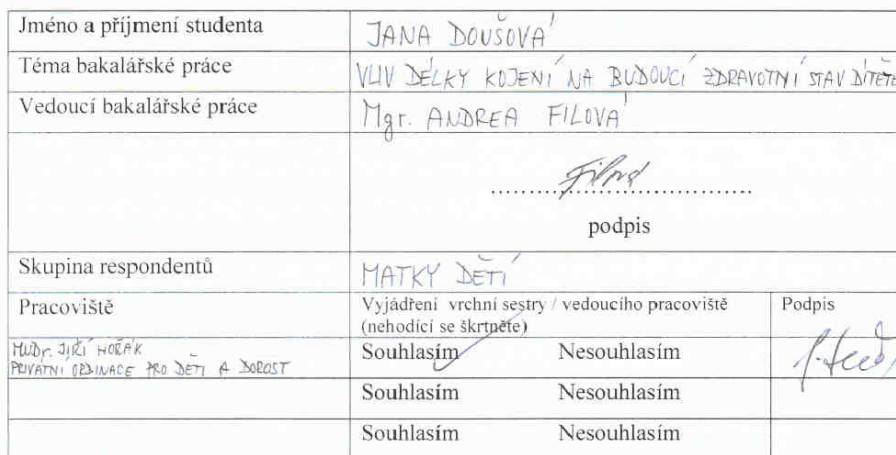 Jméno a příjmení studenta JANA DOUŠOVÁ
Téma bakalářské práce VLIV DÉLKY KOJENÍ NA BUDOUCÍ ZDRAVOTNÍ STAV DÍTĚTE
Vedoucí bakalářské práce Mgr. ANDREA FILOVÁ
Filová
podpis
Skupina respondentů MATKY DĚTÍ
Pracoviště Vyjádření vrchní sestry / vedoucího pracoviště Podpis
(nehodící se škrtněte)
MUDr. JIŘÍ HOŘÁK
PRIVÁTNÍ ORDINACE PRO DĚTI A DOROST
Souhlasím Nesouhlasím
Souhlasím Nesouhlasím
Souhlasím Nesouhlasím